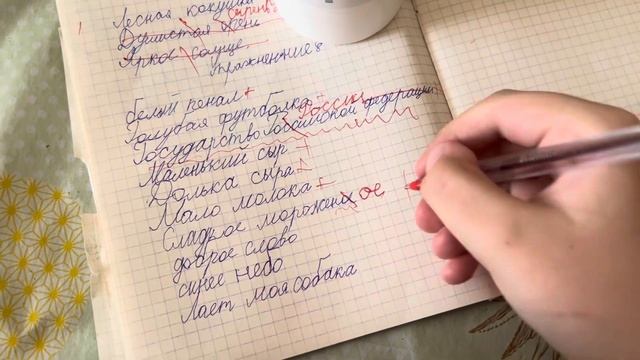 1 Лесная кукушка
сирень
Душистая сирень
Яркое солнце.
упражнение 8
белый пенал +
голубая футболка +
Россия
Государство Российской федерации
Маленький сыр +
Долька сыра +
Мало молока +
Сладкое морожен ое
доброе слово
синее небо
Лает моя собака